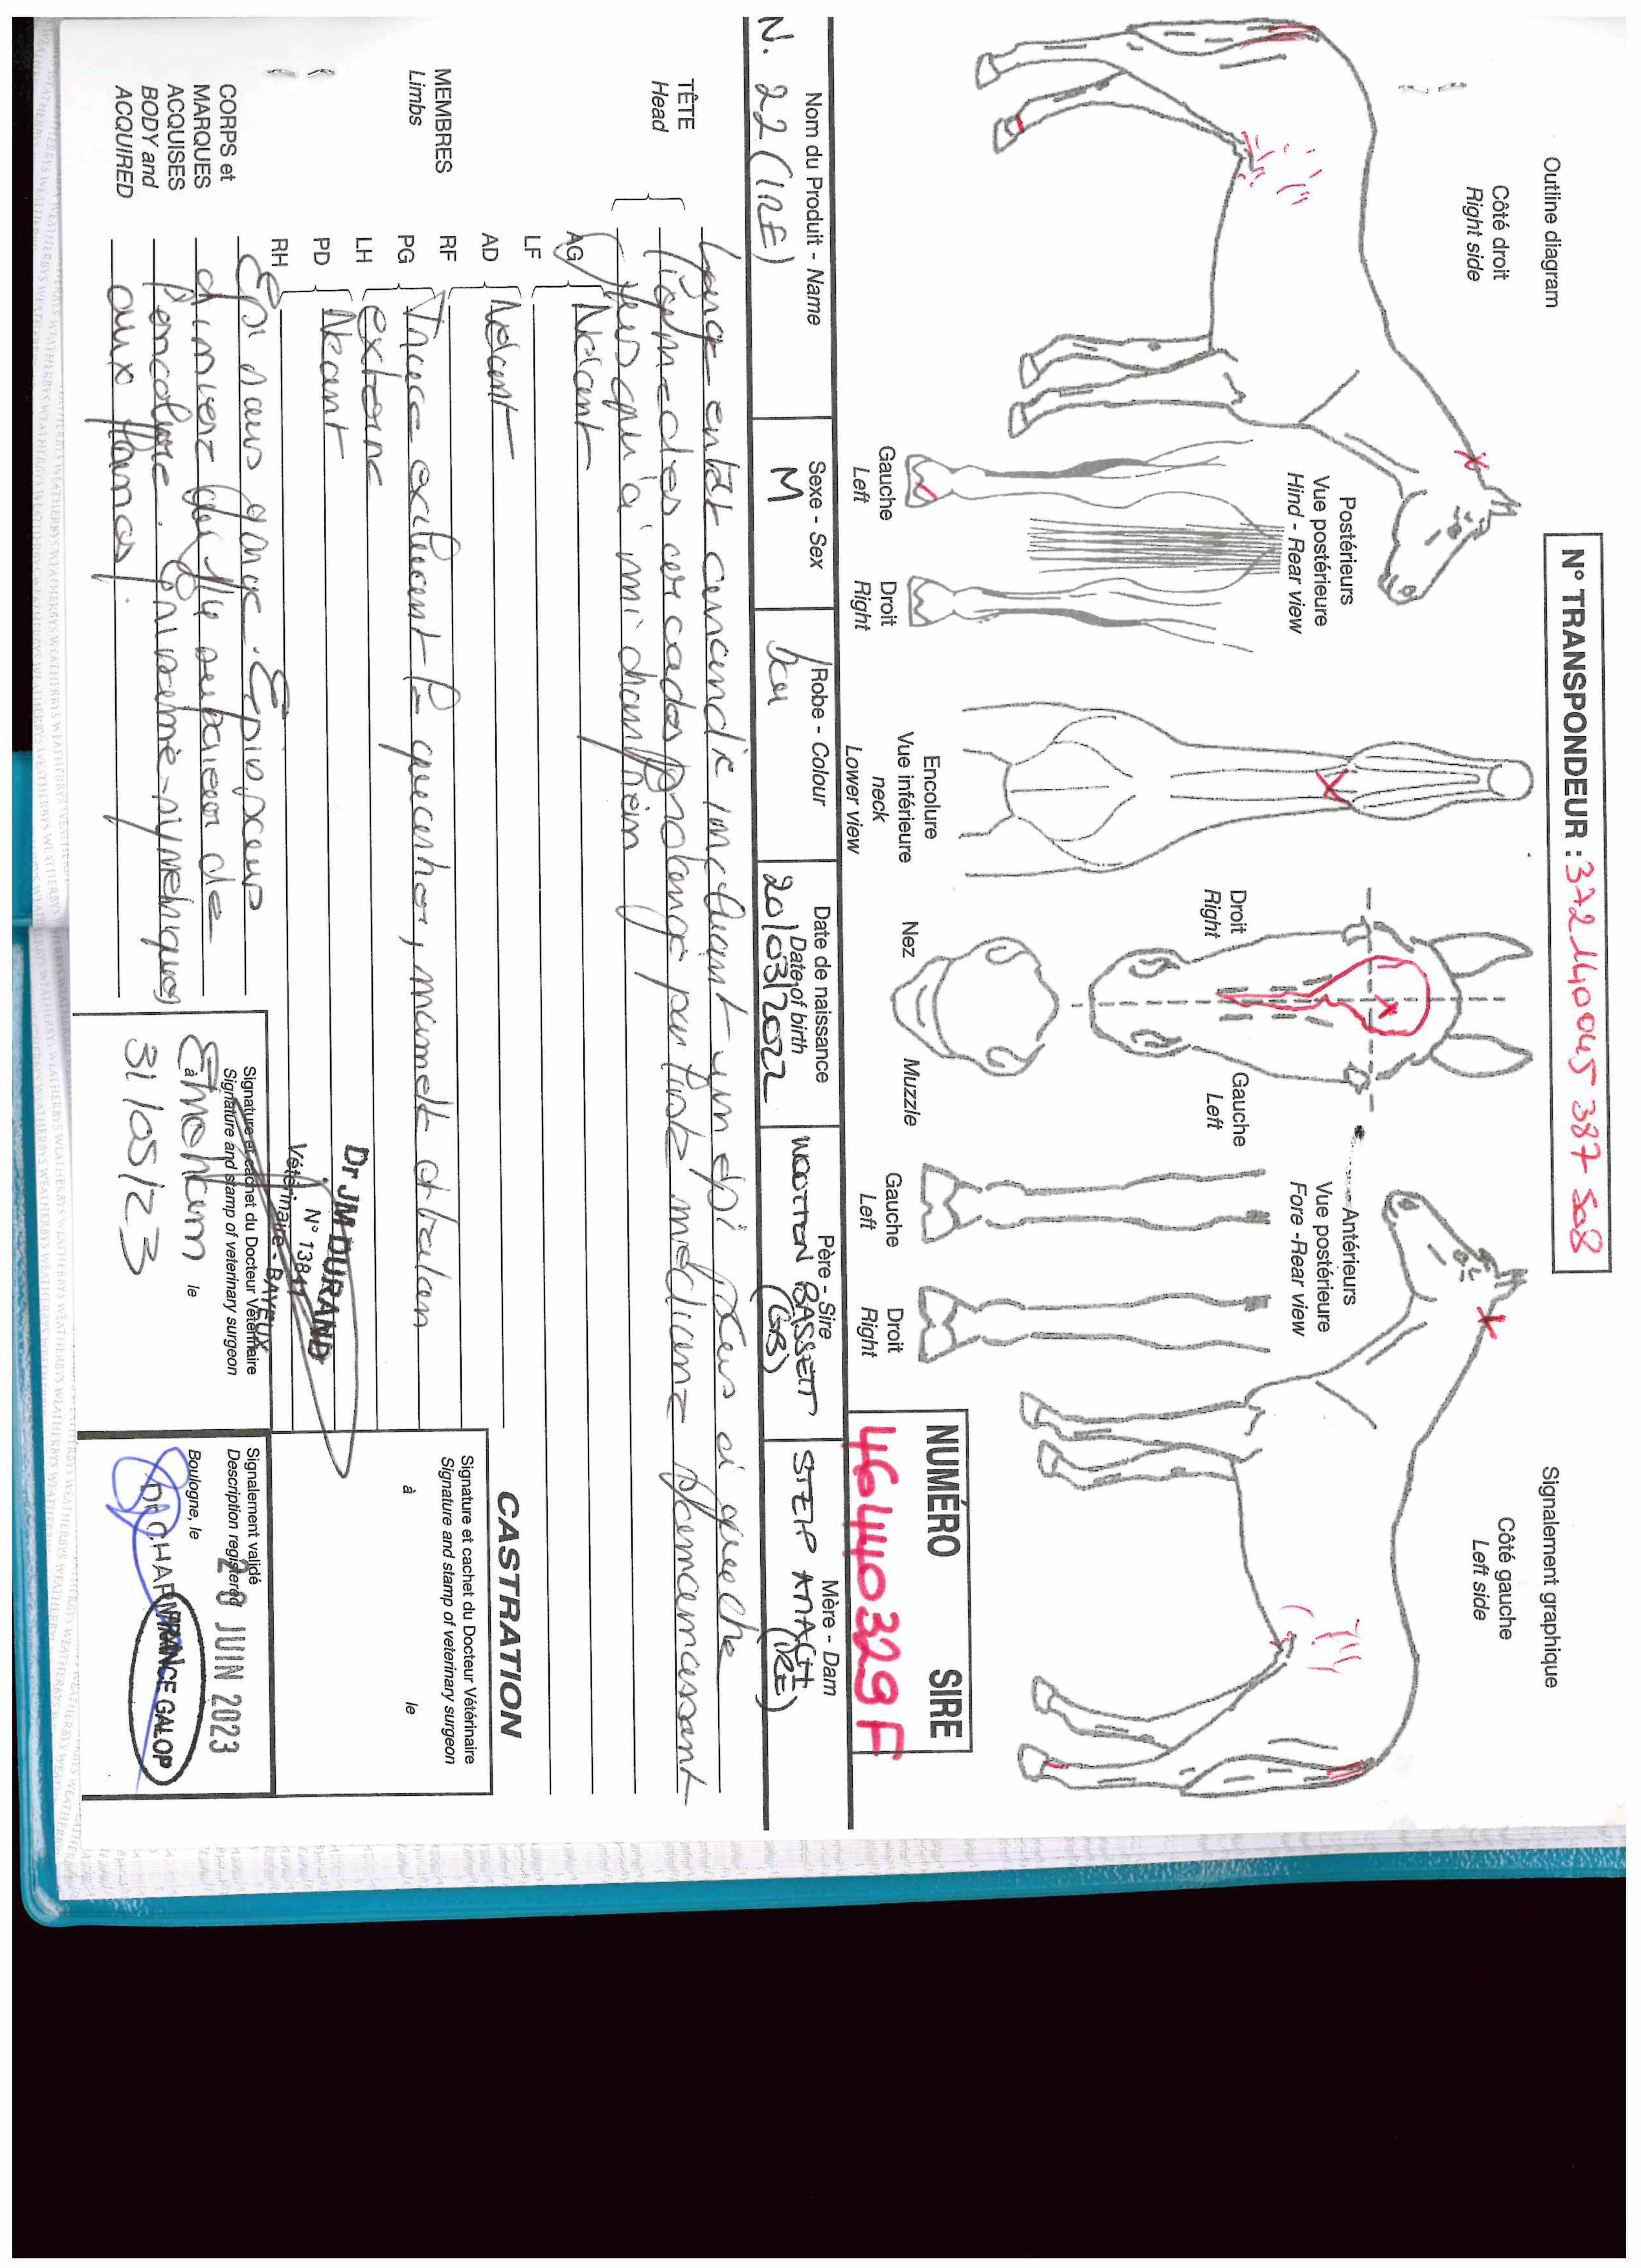 Outline diagram
Signalement graphique
N° TRANSPONDEUR : 372140045 387 508
Côté droit
Right side
Côté gauche
Left side
Postérieurs
Vue postérieure
Hind - Rear view
Antérieurs
Vue postérieure
Fore -Rear view
Droit
Right
Gauche
Left
Encolure
Vue inférieure
neck
Lower view
Gauche
Left
Droit
Right
Nez
Muzzle
Gauche
Left
Droit
Right
NUMÉRO SIRE
46440329 F
Nom du Produit - Name
Sexe - Sex
Robe - Colour
Date de naissance
Date of birth
Père - Sire
Mère - Dam
N. 22 (IRE)
M
bai
20/03/2022
WOOTTON BASSETT
(GB)
(IRE)
TÊTE
Head
en tête incluant un épi à gauche
prolongé par liste médiane
jusqu'à mi chanfrein
MEMBRES
Limbs
AG
LF
Néant
AD
RF
Néant
PG
LH
Trace de balzane
externe
PD
RH
Néant
CORPS et
MARQUES
ACQUISES
BODY and
ACQUIRED
supérieur de
l'encolure.
aux flancs.
Dr JM DURAND
N° 13841
Vétérinaire - BAYEUX
Signature et cachet du Docteur Vétérinaire
Signature and stamp of veterinary surgeon
à Etreham le
31/05/23
CASTRATION
Signature et cachet du Docteur Vétérinaire
Signature and stamp of veterinary surgeon
à le
Signalement validé
Description registered
20 JUIN 2023
Boulogne, le
FRANCE GALOP